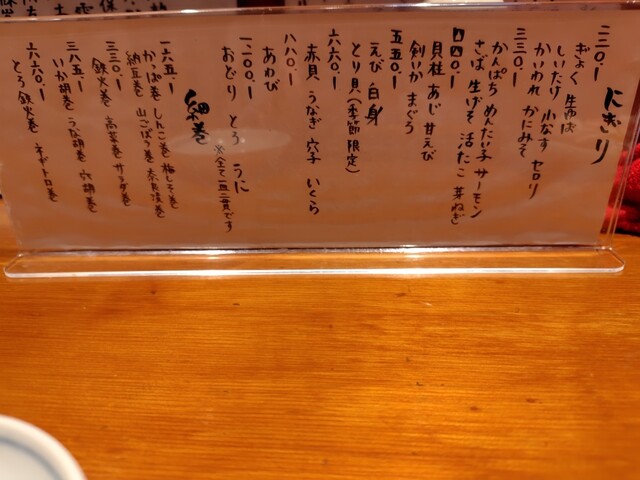 にぎり
二二〇.ー
ぎょく 生ゆば
しいたけ 小なす セロリ
かいわれ かにみそ
三三〇.ー
かんぱち めんたい子 サーモン
さば 生げそ 活たこ 芽ねぎ
四四〇.ー
貝柱 あじ 甘えび
剣いか まぐろ
五五〇.ー
えび 白身
とり貝(季節限定)
六六〇.ー
赤貝 うなぎ 穴子 いくら
八八〇.ー
あわび
一、二〇〇.ー
おどり とろ うに
※全て一
細巻
一六五.ー
かっぱ巻 しんこ巻 梅しそ巻
納豆巻 山ごぼう巻 奈良漬巻
三三〇.ー
鉄火巻 高菜巻 サラダ巻
三八五.ー
いか胡巻 うな胡巻 穴胡巻
六六〇.ー
とろ鉄火巻 ネギトロ巻